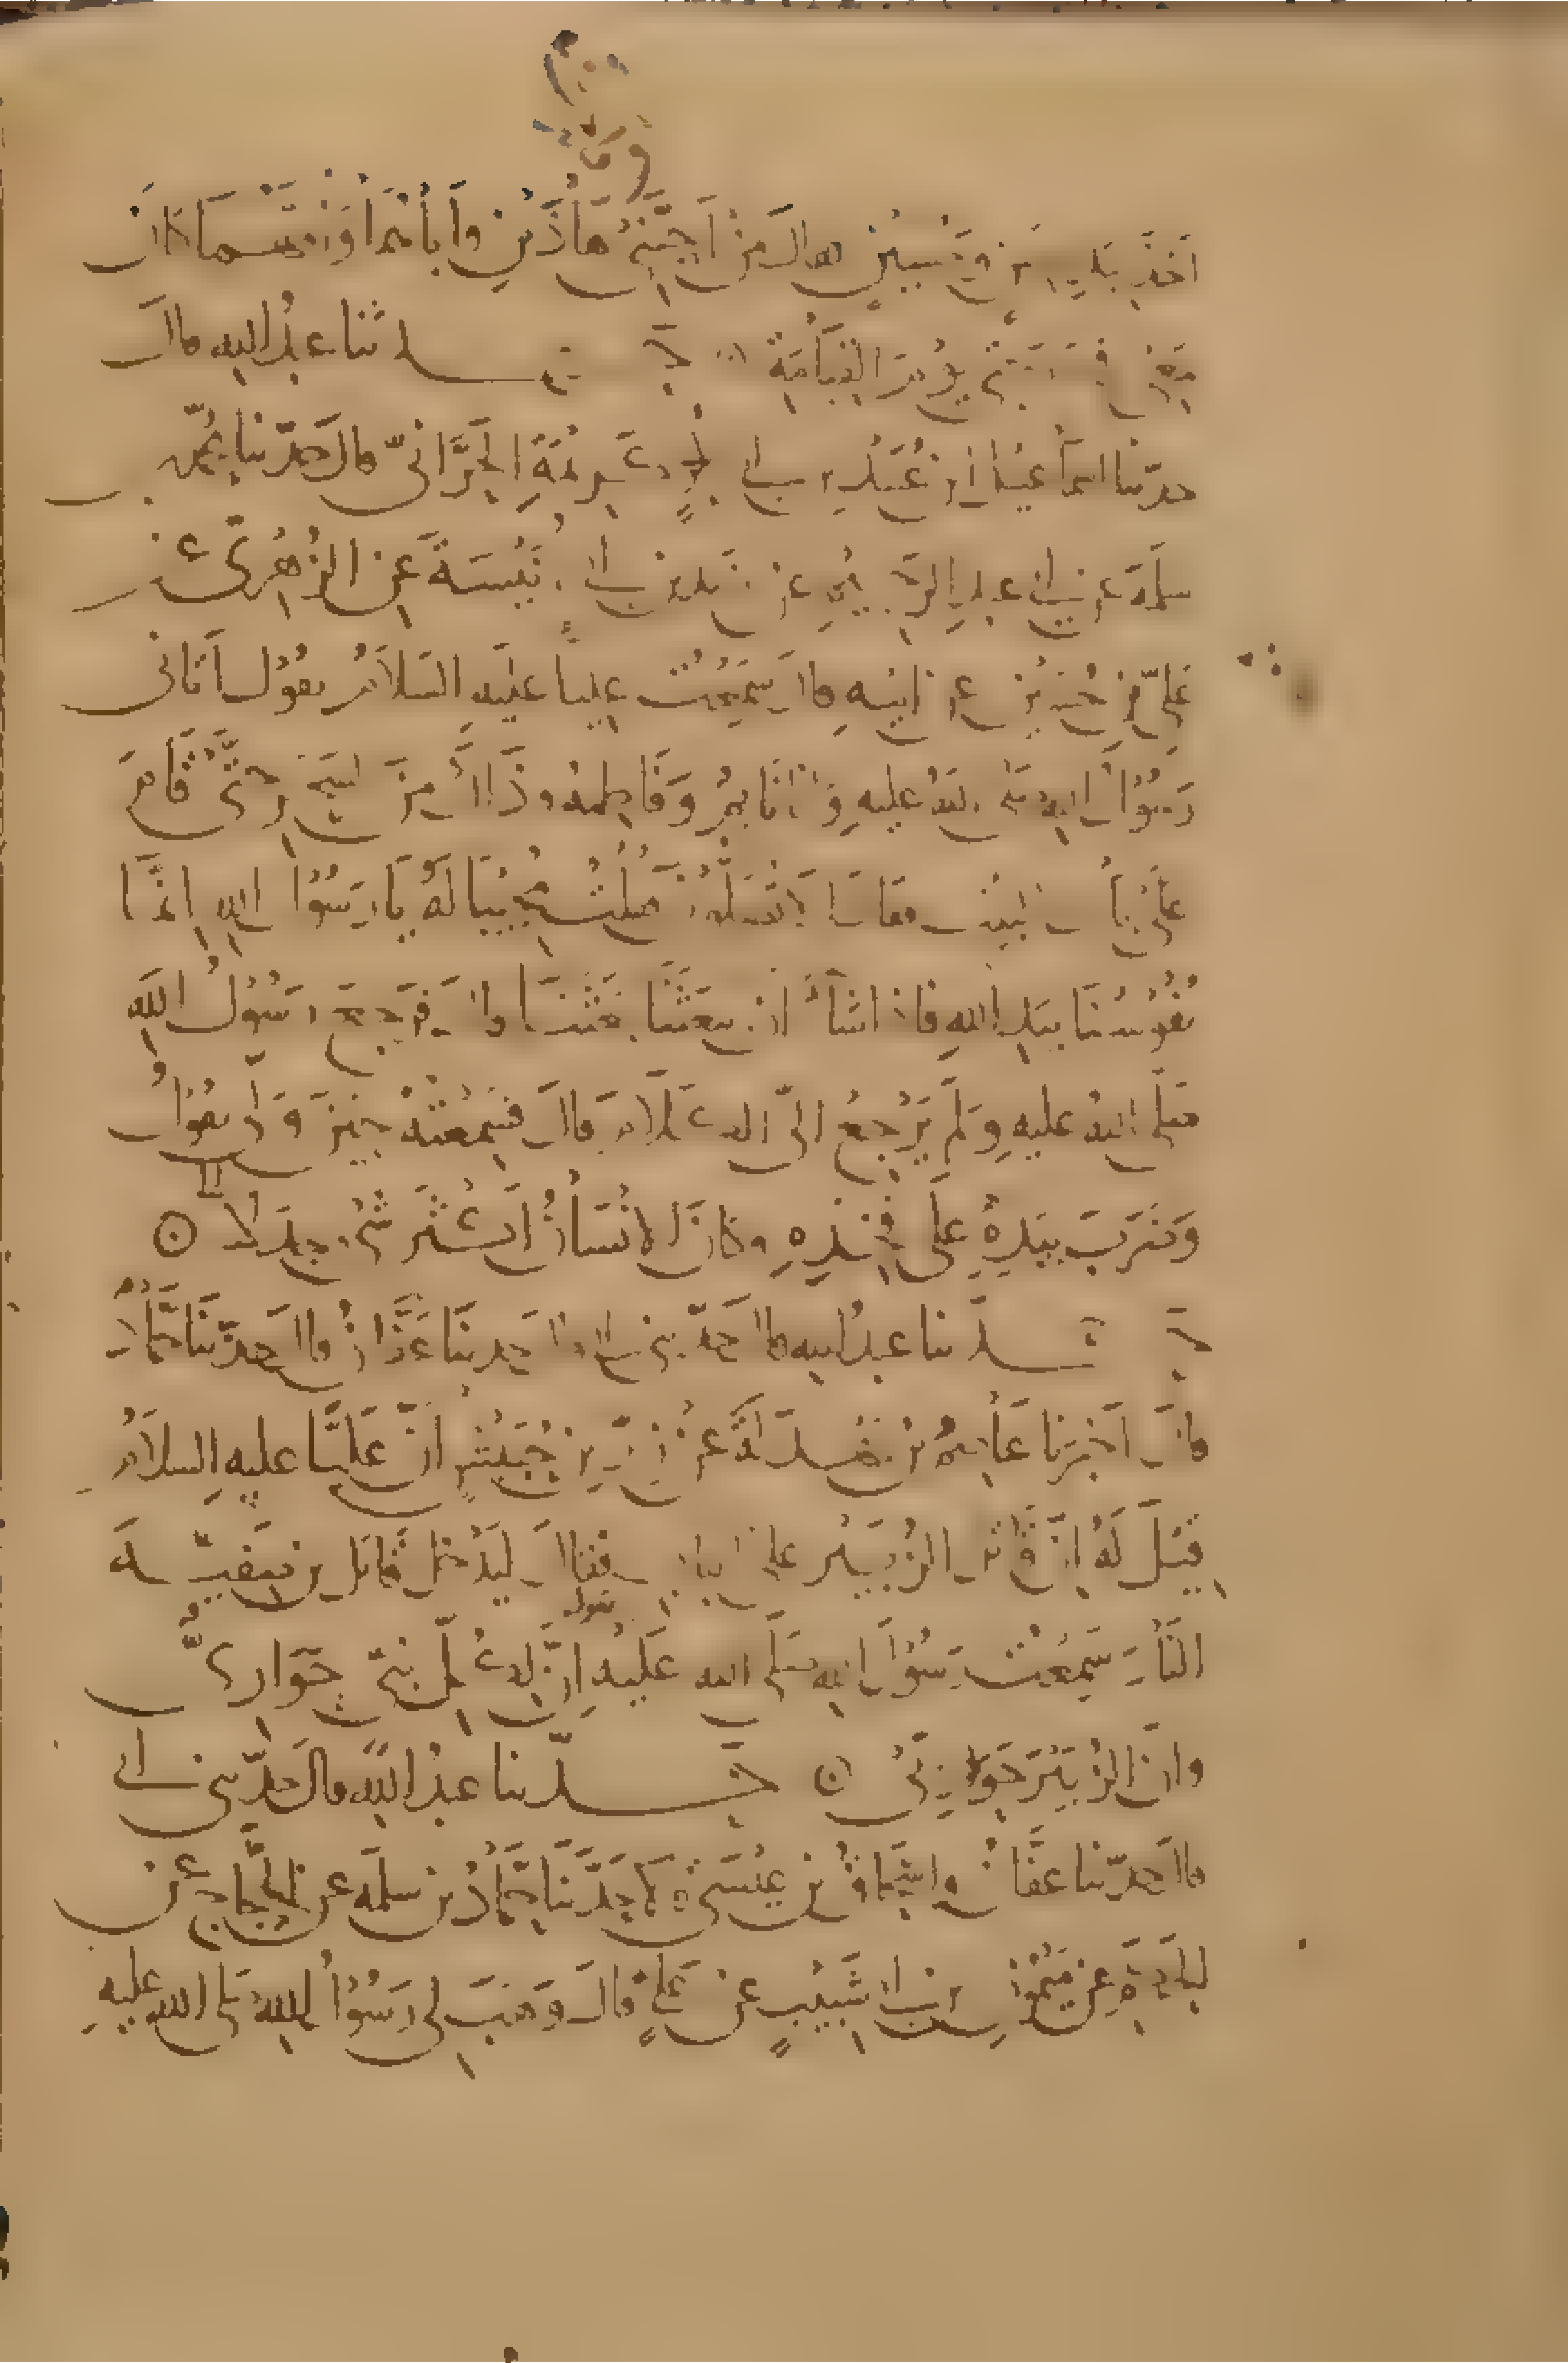 اخذ بيد حسن وحسين فقال من احبني واحب هاذين واباهما وامهما كان
معي في درجتي يوم القيامة
حدثنا عبد الله قال
حدثنا اسماعيل بن عبيد بن ابي كريمة الحراني قال حدثنا محمد بن
سلمة عن ابي عبد الرحيم عن زيد بن ابي انيسة عن الزهري عن
علي بن حسين عن ابيه قال سمعت عليا عليه السلام يقول اتاني
رسول الله صلى الله عليه وانا نايم وفاطمة وذلك من السحر حتى قام
على باب البيت فقال الا تصلون فقلت مجيبا له يا رسول الله انما
نفوسنا بيد الله فاذا شاء ان يبعثنا بعثنا قال فرجع رسول الله
صلى الله عليه ولم يرجع الي الكلام قال فسمعته حين ولى يقول
وضرب بيده على فخذه وكان الانسان اكثر شيء جدلا
حدثنا عبد الله قال حدثني ابي قال حدثنا عفان قال حدثنا حماد
قال اخبرنا عاصم بن بهدلة عن زر بن حبيش ان عليا عليه السلام
قيل له ان قاتل الزبير على الباب فقال ليدخل قاتل بن صفية
النار سمعت رسول الله صلى الله عليه يقول ان لكل نبي حواري
وان الزبير حواريي حدثنا عبد الله قال حدثني ابي
قال حدثنا عفان واسحاق بن عيسى قالا حدثنا حماد بن سلمة عن الحجاج عن
الحكم عن ميمون بن ابي شبيب عن علي قال وهب لي رسول الله صلى الله عليه